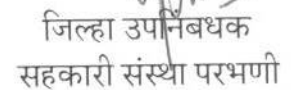 जिल्हा उपनिंबधक
सहकारी संस्था परभणी